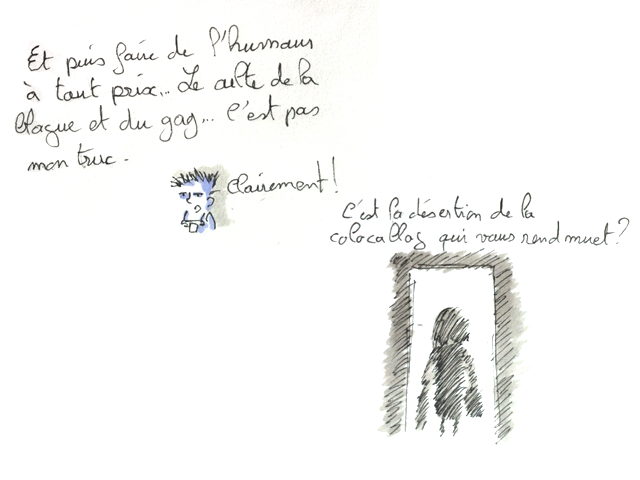 Et puis faire de l'humour
à tout prix... Le culte de la
blague et du gag... C'est pas
mon truc.
Clairement!
C'est la désertion de la
colocablog qui vous rend muet?